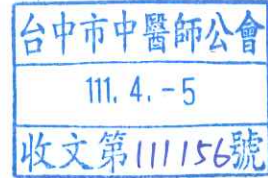 台中市中醫師公會
111. 4. -5
收文第111156號